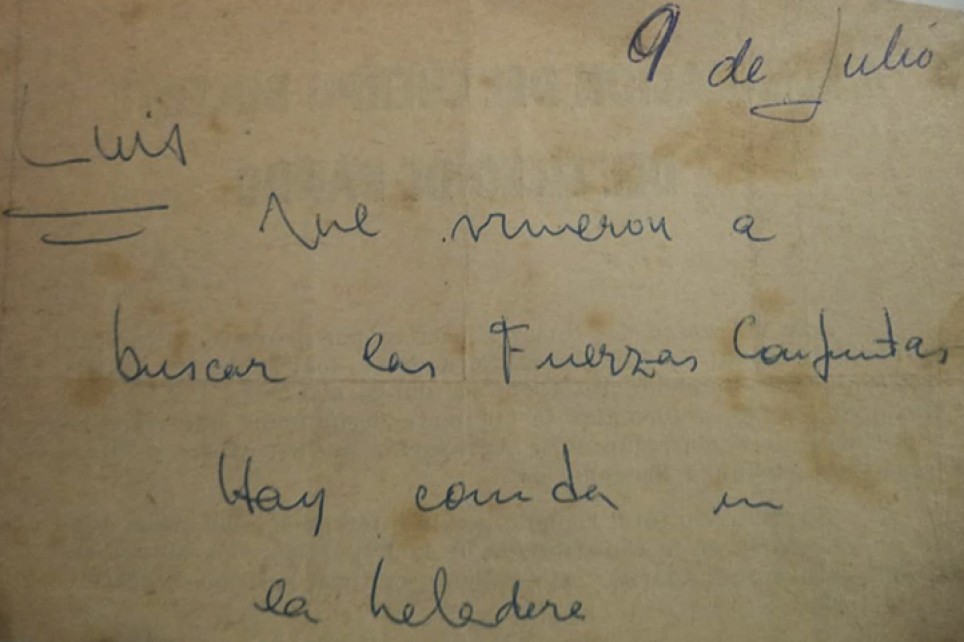 9 de Julio
Luis
Me vinieron a
buscar las Fuerzas Conjuntas
Hay comida en
la heladera